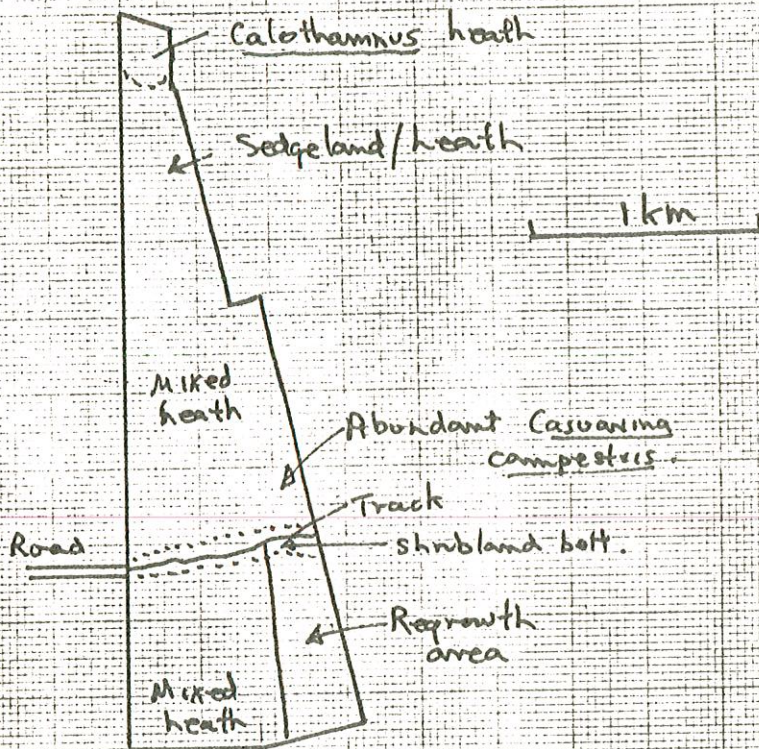 Calothamnus heath
Sedgeland/heath
1 km
Mixed
heath
Abundant Casuarina
campestris.
Track
Road
shrubland belt.
Regrowth
area
Mixed
heath